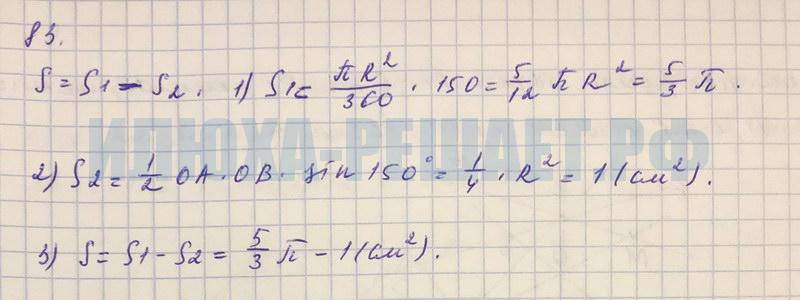 83.
S = S1 - S2. 1) S1 = πR²/360 · 150 = 5/12 πR² = 5/3 π.
ИЛЮХА-РЕШАЕТ.РФ
2) S2 = 1/2 OA · OB · sin 150° = 1/4 · R² = 1 (см²).
3) S = S1 - S2 = 5/3 π - 1 (см²).